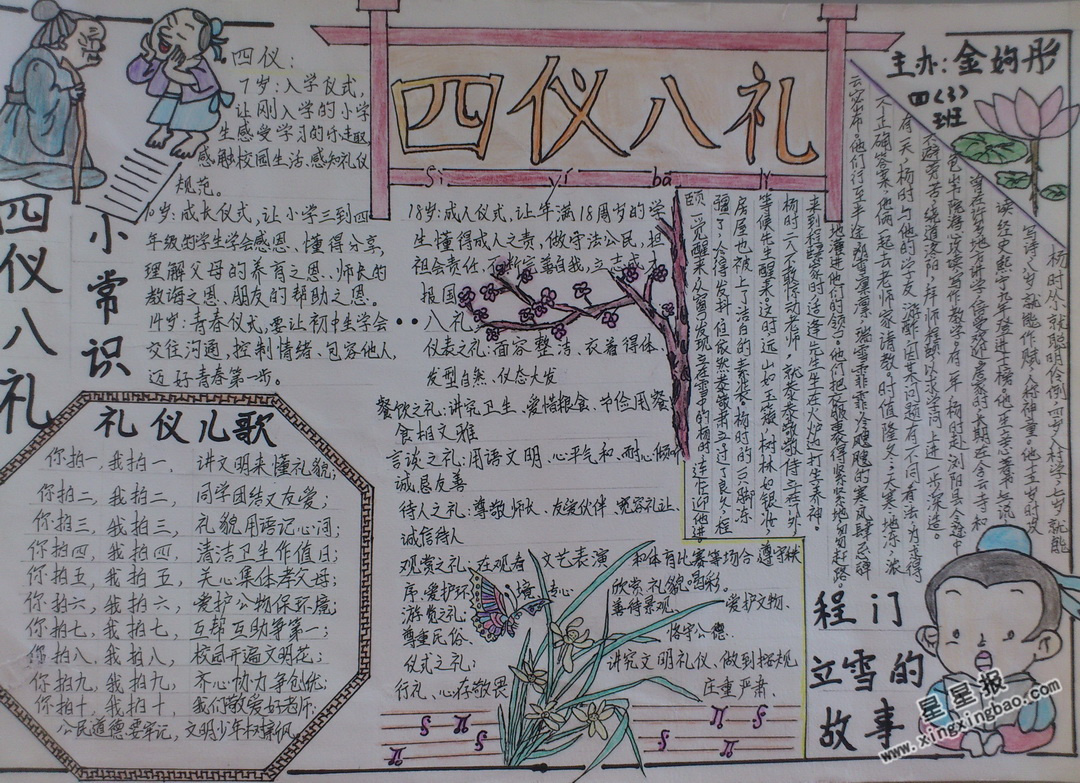 四仪八礼
sì yí bā lǐ
主办:金姁彤
四(3)
班
四仪八礼
小常识
四仪:
7岁:入学仪式,
让刚入学的小学
生感受学习的乐趣,
感触校园生活,感知礼仪
规范。
10岁:成长仪式,让小学三到四
年级的学生学会感恩、懂得分享,
理解父母的养育之恩、师长的
教诲之恩、朋友的帮助之恩。
14岁:青春仪式,要让初中生学会
交往沟通,控制情绪、包容他人,
迈好青春第一步。
18岁:成人仪式,让年满18周岁的学
生懂得成人之责,做守法公民,担
社会责任,不断完善自我,立志成才
报国
八礼
仪表之礼:面容整洁、衣着得体、
发型自然、仪态大发
餐饮之礼:讲究卫生、爱惜粮食、节俭用餐
食相文雅
言谈之礼:用语文明、心平气和、耐心倾听
诚恳友善
待人之礼:尊敬师长、友爱伙伴、宽容礼让、
诚信待人
观赏之礼:在观看 文艺表演 和体育比赛等场合遵守秩
序、爱护环 境、专心 欣赏礼貌喝彩。
游览之礼: 善待景观、 爱护文物、
尊重民俗、 恪守公德。
仪式之礼: 讲究文明礼仪、做到按规
行礼、心存敬畏 庄重严肃、
礼仪儿歌
你拍一,我拍一, 讲文明来懂礼貌;
你拍二,我拍二, 同学团结又友爱;
你拍三,我拍三, 礼貌用语记心间;
你拍四,我拍四, 清洁卫生作值日;
你拍五,我拍五, 关心集体孝父母;
你拍六,我拍六, 爱护公物保环境;
你拍七,我拍七, 互帮互助争第一;
你拍八,我拍八, 校园开遍文明花;
你拍九,我拍九, 齐心协力争创优;
你拍十,我拍十, 我们敬爱好老师;
公民道德要牢记,文明少年树新风。
程门
立雪的
故事
杨时从小就聪明伶俐,四岁入村学,七岁就能
写诗,八岁就能作赋,人称神童。他十五岁时攻
读经史,熙宁九年登进士榜。他一生立志著书立说,
曾在许多地方讲学,备受欢迎。居家时,长期在含云寺和
有一天,杨时与他的学友游酢,因某问题有不同看法,为求得
一个正确答案,他俩一起去老师家请教。时值隆冬,天寒地冻,浓
云密布。他们行至半途,
来到程颐家时,适逢先生坐在火炉旁打坐养神。
杨时二人不敢惊动老师,就恭恭敬敬侍立在门外,
等候先生醒来。这时,远山如玉簇,树林如银妆,
房屋也被上了洁白的素装。杨时的一只脚冻
颐一觉醒来,从窗口发现
星星报
www.xingxingbao.com